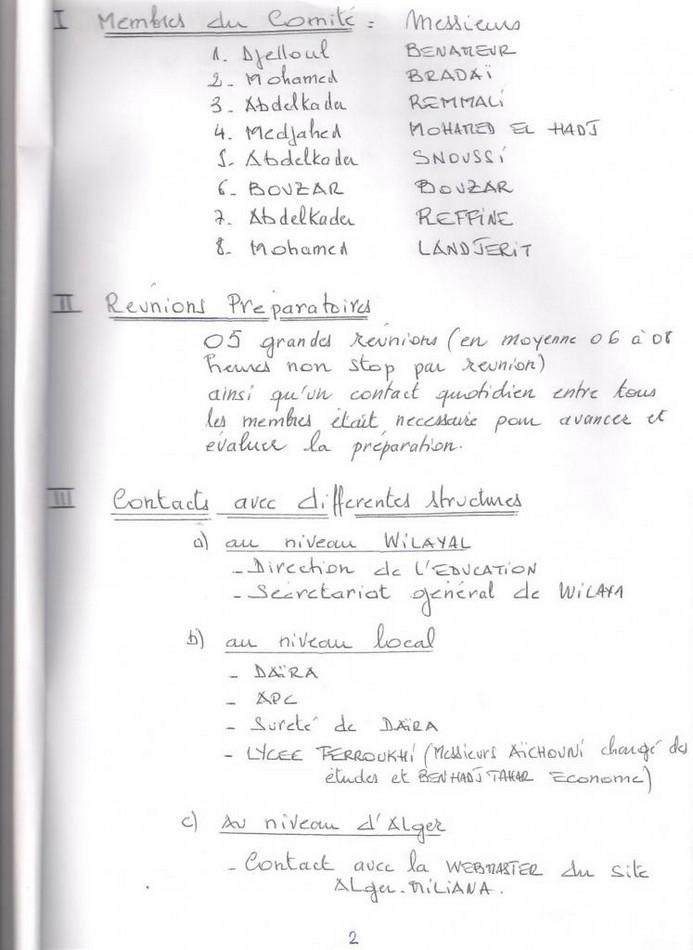 I Membres du Comité : Messieurs
1. Djelloul BENAMEUR
2. Mohamed BRADAÏ
3. Abdelkader REMMALI
4. Medjahed MOHAMED EL HADJ
5. Abdelkader SNOUSSI
6. BOUZAR BOUZAR
7. Abdelkader REFFINE
8. Mohamed LANDJERIT
II Reunions Preparatoires
05 grandes reunions (en moyenne 06 à 08
heures non stop par reunion)
ainsi qu'un contact quotidien entre tous
les membres était necessaire pour avancer et
évaluer la préparation.
III Contacts avec differentes structures
a) au niveau WILAYAL
- Direction de L'EDUCATION
- Secretariat général de WILAYA
b) au niveau local
- DAÏRA
- APC
- Sureté de DAÏRA
- LYCEE FERROUKHI (Messieurs AÏCHOUNI chargé des
études et BENHADJ TAHAR Econome)
c) Au niveau d'Alger
- Contact avec la WEBMASTER du site
ALger-MILIANA.
2